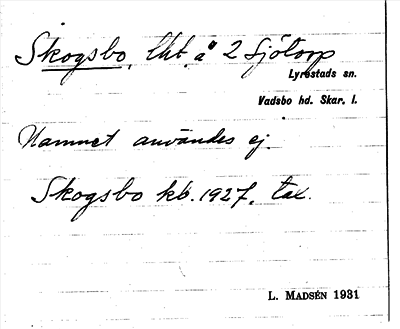 Skogsbo, lht. å 2 Sjötorp
Lyrestads sn.
Vadsbo hd. Skar. l.
Namnet användes ej.
Skogsbo kb. 1927, tax.
L. MADSÉN 1931